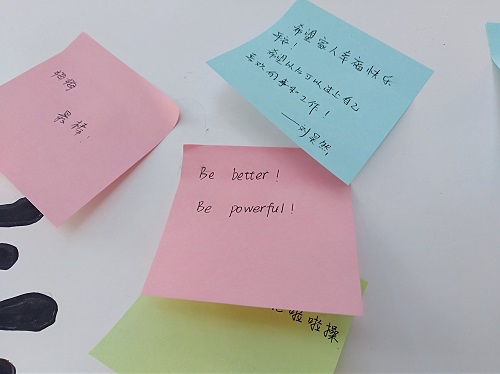 希望家人幸福快乐
平安!
希望以后可以过上自己
喜欢的事和工作!
——刘昊然
Be better!
Be powerful!
啦啦操